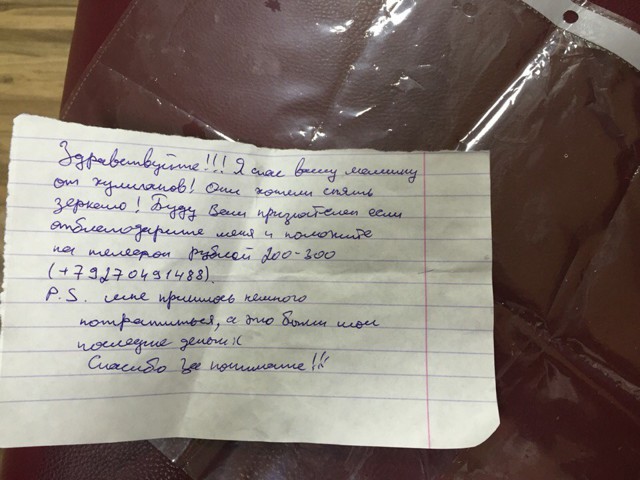 Здравствуйте!!! Я спас вашу машину
от хулиганов! Они хотели снять
зеркало! Буду Вам признателен если
отблагодарите меня и положите
на телефон рублей 200-300
(+79270491488).
P.S. мне пришлось немного
потратиться, а это были мои
последние деньги :(
Спасибо за понимание!!!